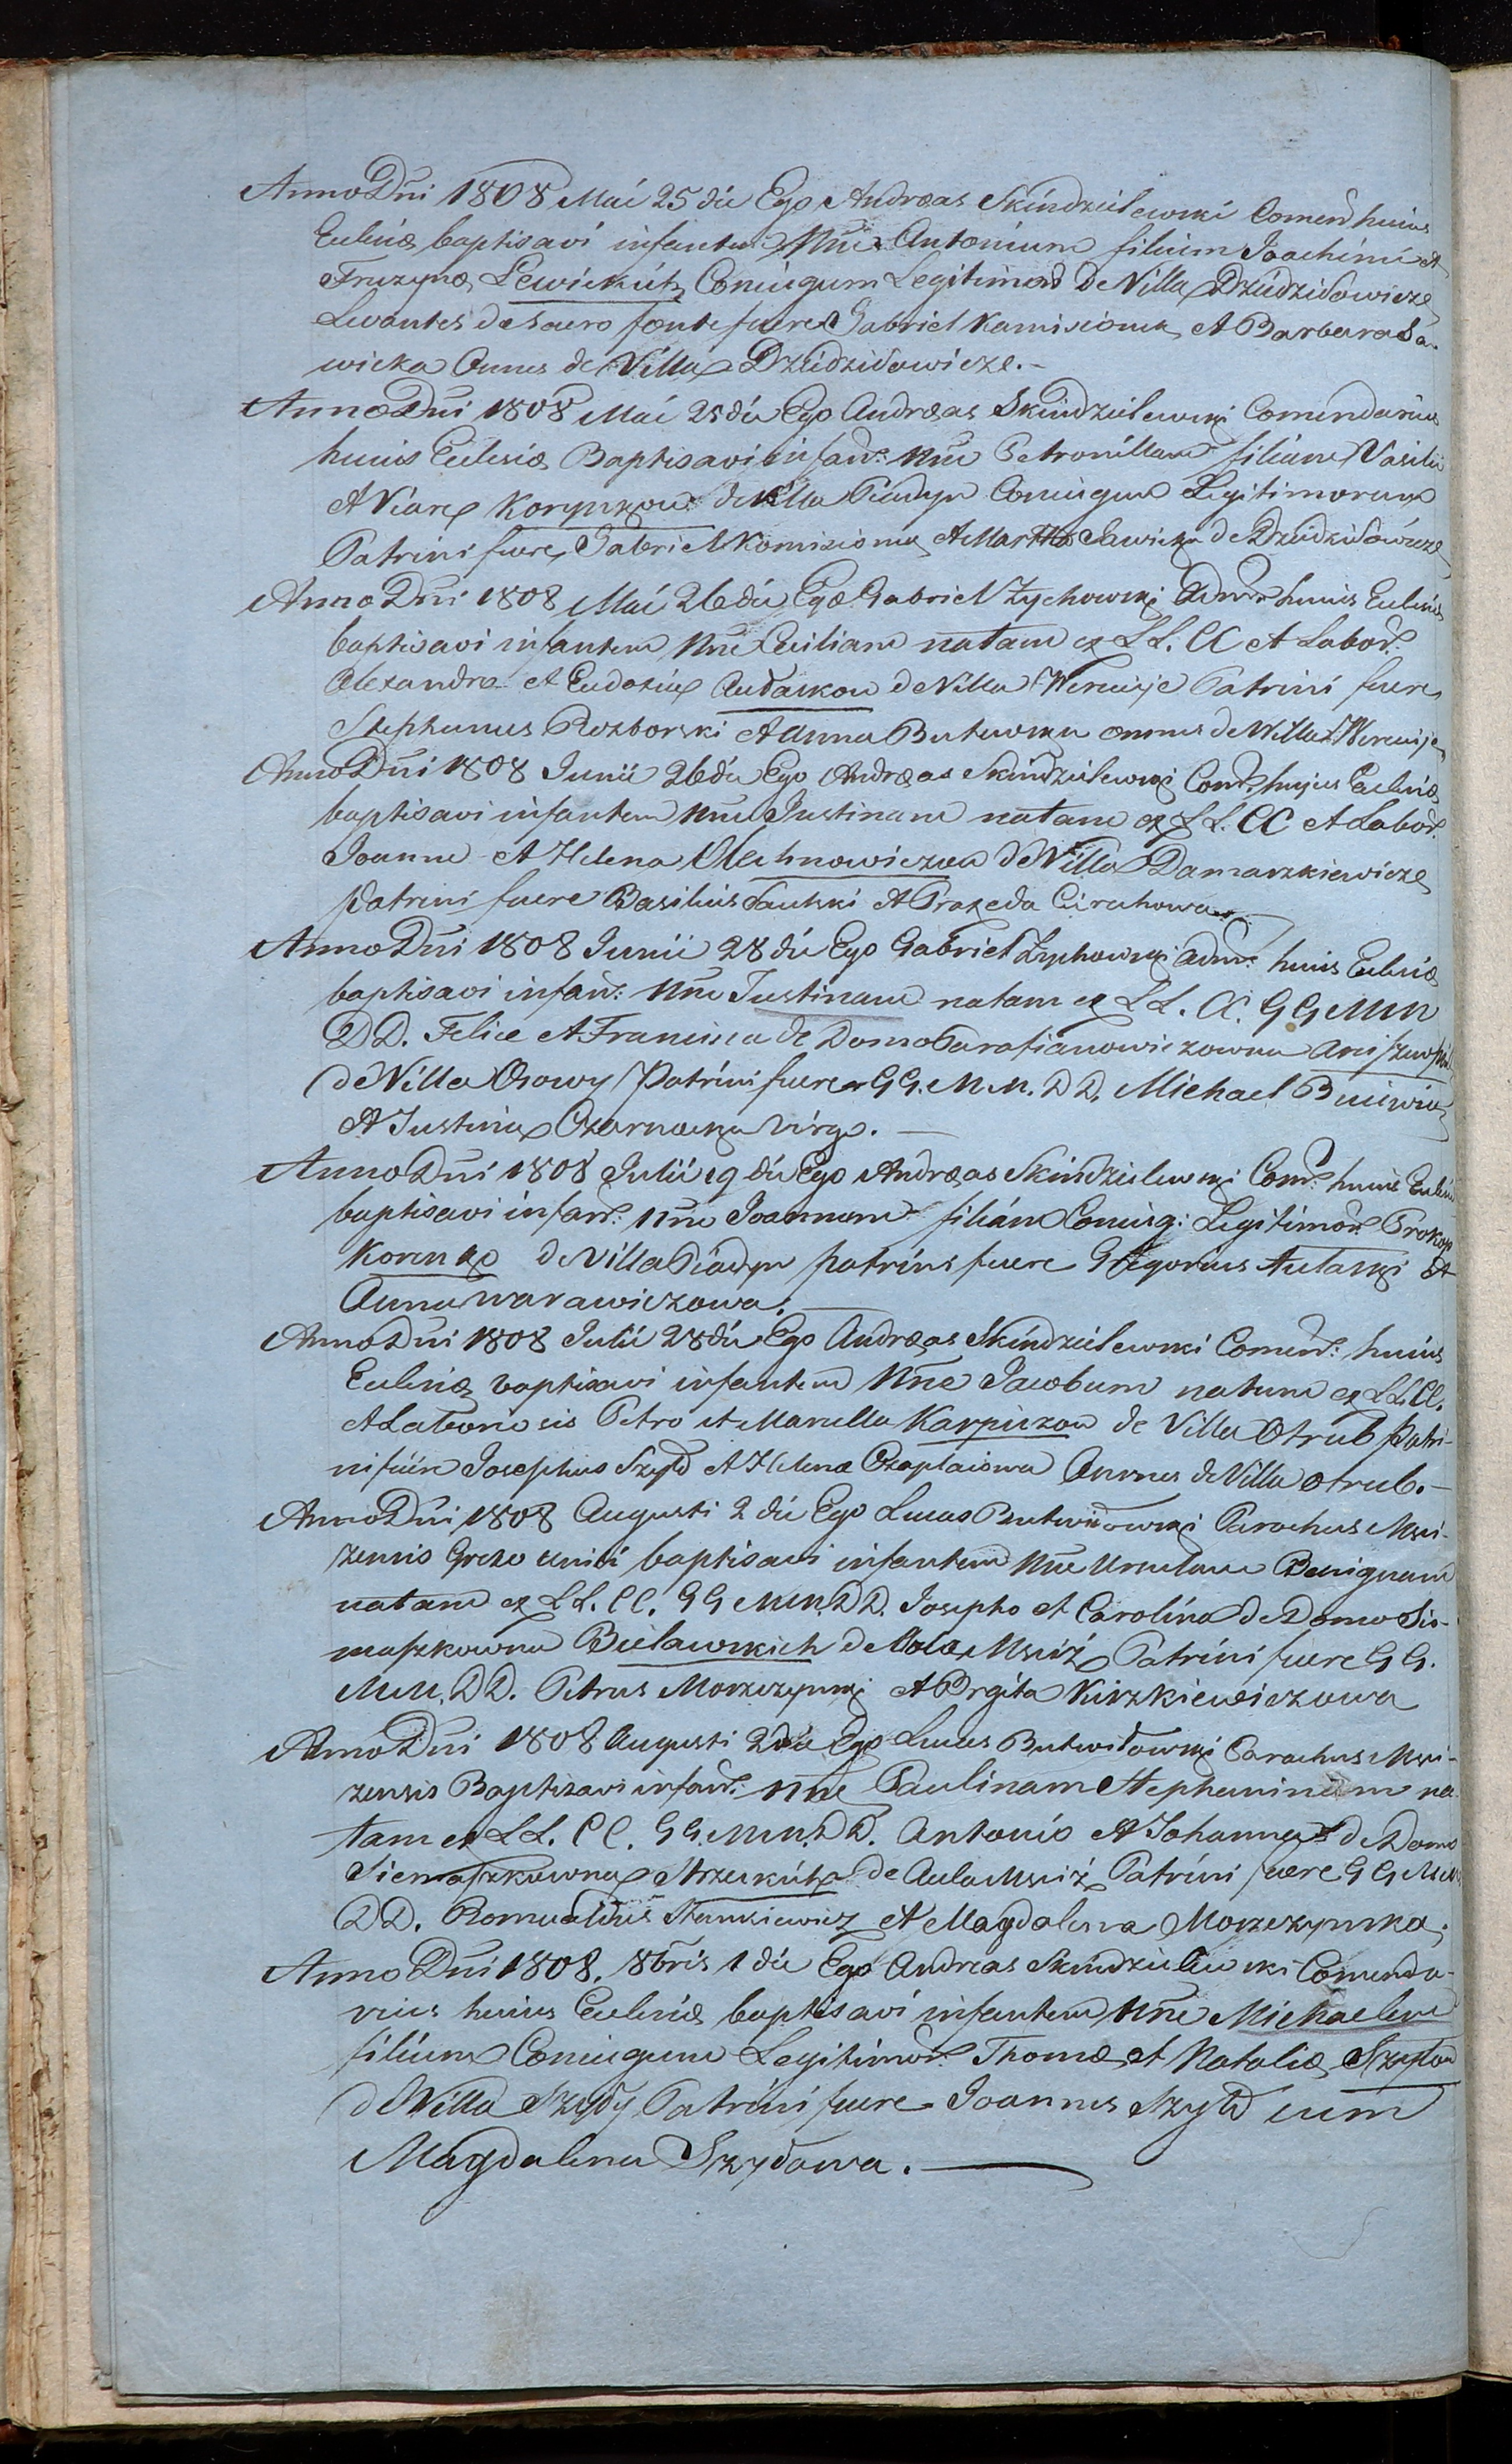 Anno Dni 1808 Mai 25 die Ego Andræas Skindzielewski Comend huius
Eclesiæ baptisavi infantem Nne Antonium filium Joachimi et
Fruzynæ Lewickich Coniugum Legitimor De Villa Dziedziłowicze
Levantes de Sacro fonte fuere Gabriel Kamisionek et Barbara Sa-
wicka Omnes de Villa Dziedziłowicze.-
Anno Dni 1808 Mai 25 die Ego Andræas Skindzielewski Comendarius
huius Eclesiæ Baptisavi infan: Nne Petronillam filiam Vasilii
et Viaræ de Villa Coniugum Legitimorum
Patrini fuere Gabriel Komisionek et Martha Sawicka de Dziedziłowicze
Anno Dni 1808 Mai 26 die Ego Gabriel Zychowski Admr huius Eclesiæ
baptisavi infantem Nne Ceciliam natam ex LL. CC et Labor.
Alexandro et Eudoxia de Villa Patrini fuere
Stephanus Rozborski et Anna omnes de Villa
Anno Dni 1808 Junii 26 die Ego Andræas Skindzielewski Comd. hujus Eclesiæ
baptisavi infantem Nne Justinam natam ex LL. CC et Labor.
Joanne et Helena Olechnowiczow de Villa Damaszkiewicze
Patrini fuere Basilius et Praxeda
Anno Dni 1808 Junii 28 die Ego Gabriel Zychowski Admr. huius Eclesiæ
baptisavi infan: Nne Justinam natam ex LL. CC. GG MM
DD. Felice et Francisca de Domo Parafianowiczowna
de Villa Osowy Patrini fuere GG. M M. DD. Michael
et Justina Czarnocka Virgo. —
Anno Dni 1808 Julii 19 die Ego Andræas Skindzielewski Comd. huius Eclesiæ
baptisavi infan: Nne Joannem filium Coniug: Legitimor. Prokop
de Villa patrini fuere Gregorius et
Anna Warawiczowa. —
Anno Dni 1808 Julii 28 die Ego Andræas Skindzielewski Comend: huius
Eclesiæ baptisavi infantem Nne Jacobum natum ex LL. CC.
et Laboriosis Petro et Marcella Karpiczow de Villa Otrub Patri-
ni fuere Josephus Szyło et Helena Czaplaiowa Omnes de Villa Otrub.-
Anno Dni 1808 Augusti 2 die Ego Lucas Butwiłowski Parochus Msci-
zensis Greko uniti baptisavi infantem Nne Ursulam Benignam
natam ex LL. CC. GG MM. DD. Josepho et Carolina de Domo Sie-
maszkowna Bielawskich de Aula Msciż Patrini fuere GG.
MM. DD. Petrus Morzezynski et Brgita Kirzkiewiczowa
Anno Dni 1808 Augusti 2 die Ego Lucas Butwiłowski Parochus Msci-
zensis Baptizavi infan: Nne Paulinam Stephaninam na-
tam ex LL. CC. GG. MM. DD. Antonio et Johanna de Domo
Siemaszkowna de Aula Msciż Patrini fuere GG MM
DD. Romualdus Stankiewicz et Magdalena Morzezynska.
Anno Dni 1808. 8bris 1 die Ego Andreas Skindzielewski Comenda-
rius huius Eclesiæ baptisavi infantem Nne Michaelem
filium Coniugum Legitimor. Thomæ et Nataliæ Szyłow
de Villa Szyły Patrini fuere Joannes Szyło cum
Magdalena Szyłowa. —